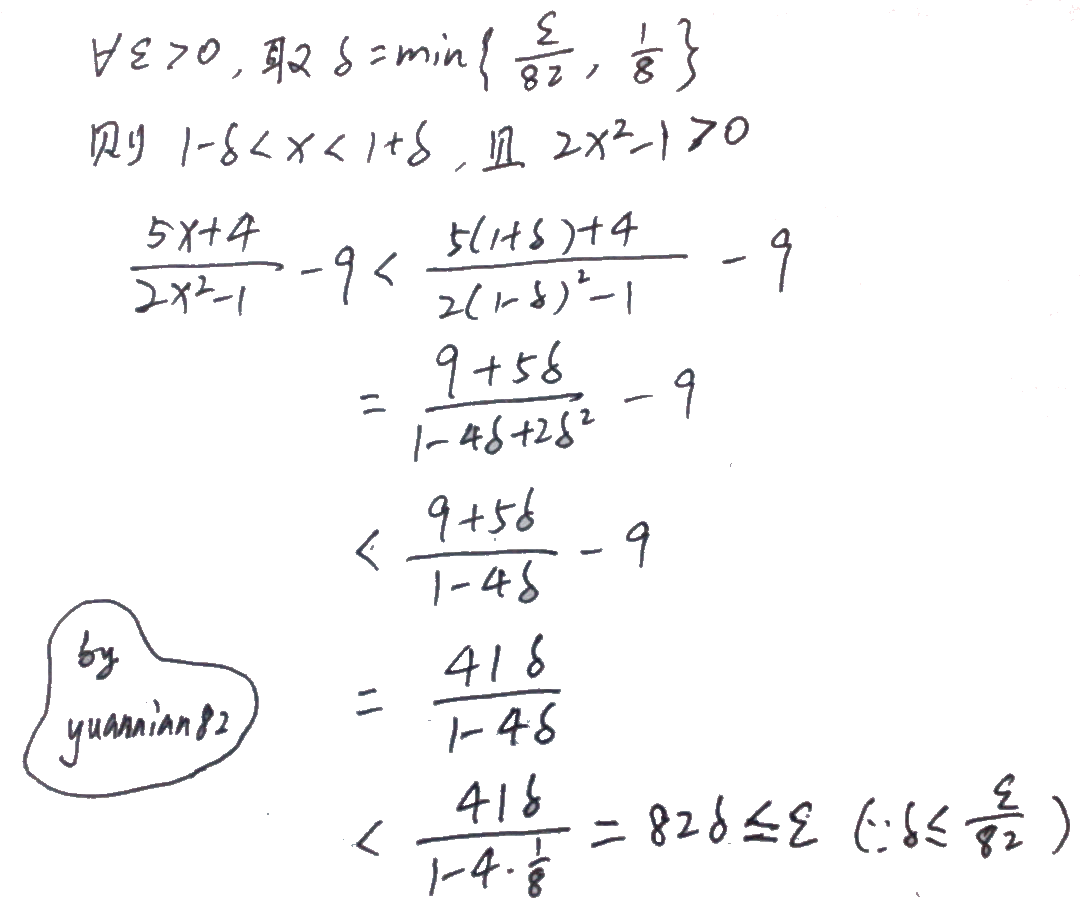 ∀ε>0, 取 δ=min{ε/82, 1/8}
则 1-δ<x<1+δ, 且 2x²-1>0
(5x+4)/(2x²-1) - 9 < (5(1+δ)+4)/(2(1-δ)²-1) - 9
= (9+5δ)/(1-4δ+2δ²) - 9
< (9+5δ)/(1-4δ) - 9
= 41δ/(1-4δ)
< 41δ/(1-4·1/8) = 82δ ≦ ε (∵ δ≤ ε/82)
by
yuannian82